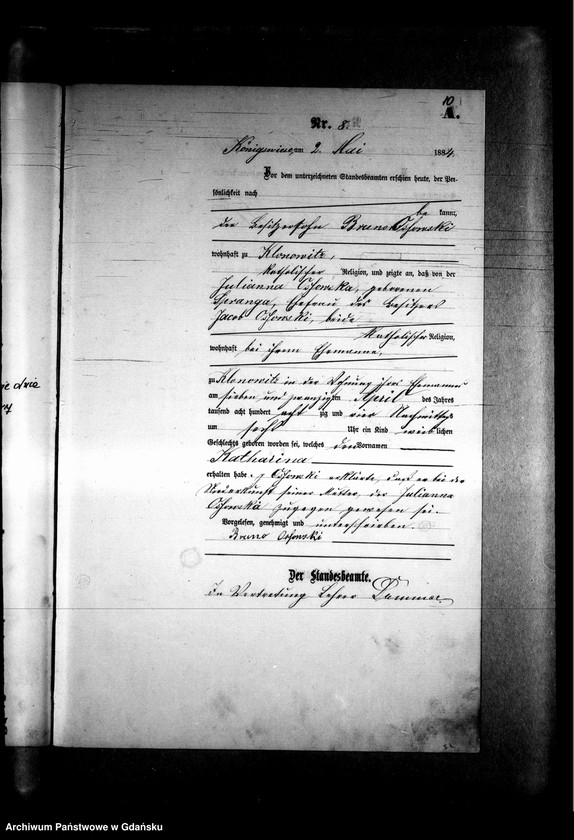 10
A.
Nr. 8.
Königswiese, am 2. Mai 1884.
Vor dem unterzeichneten Standesbeamten erschien heute, der Per-
sönlichkeit nach
be kannt,
der Besitzersohn Bruno Ossowski
wohnhaft zu Klonowitz,
katholischer Religion, und zeigte an, daß von der
Julianna Ossowska, geborenen
Spranga, Ehefrau des Besitzers
Jacob Ossowski, beide
katholischer Religion,
wohnhaft bei ihrem Ehemanne,
zu Klonowitz in der Wohnung ihres Ehemannes
am sieben und zwanzigsten April des Jahres
tausend acht hundert acht zig und vier Nachmittags
um sechs Uhr ein Kind weib lichen
Geschlechts geboren worden sei, welches den Vornamen
Katharina
erhalten habe. Ossowski erklärte, daß er bei der
Niederkunft seiner Mutter, der Julianna
Ossowska zugegen gewesen sei.
Vorgelesen, genehmigt und unterschrieben.
Bruno Ossowski
Der Standesbeamte.
In Vertretung Lehrer
Archiwum Państwowe w Gdańsku